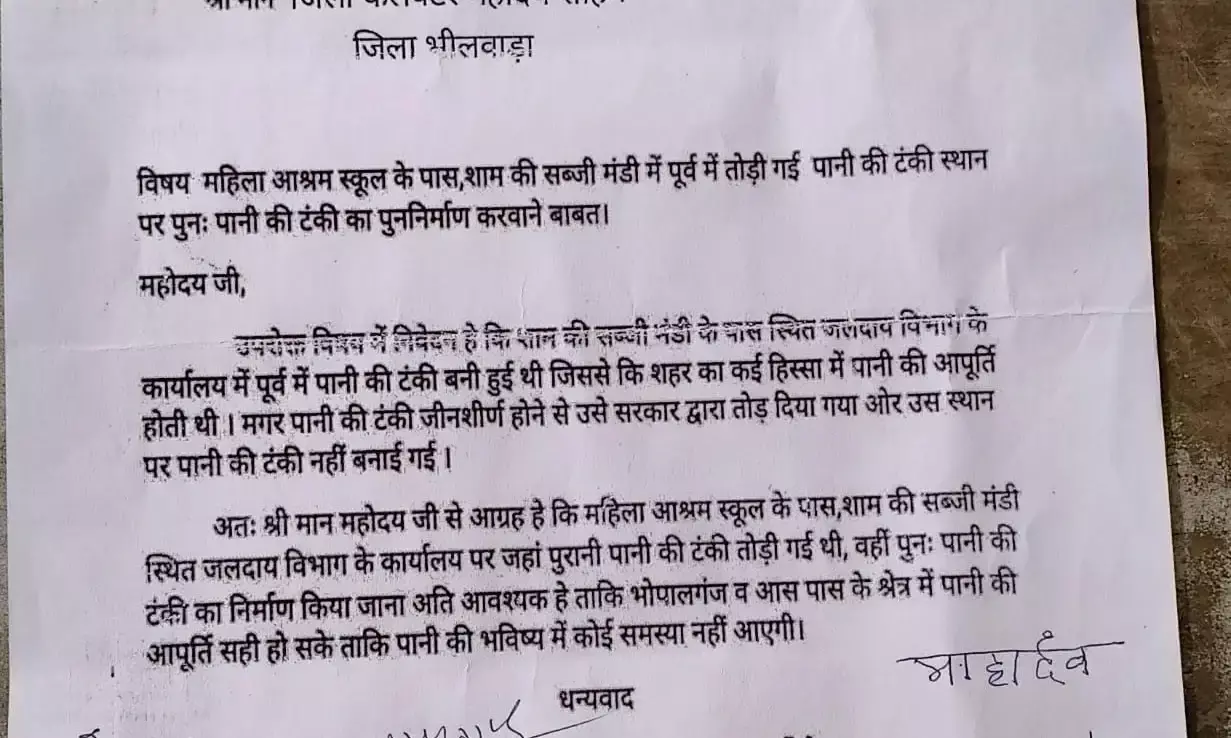 श्री मान जिला कलेक्टर महोदय साहब
जिला भीलवाड़ा
विषय महिला आश्रम स्कूल के पास,शाम की सब्जी मंडी में पूर्व में तोड़ी गई पानी की टंकी स्थान
पर पुनः पानी की टंकी का पुननिर्माण करवाने बाबत।
महोदय जी,
उपरोक्त विषय में निवेदन हे कि शाम की सब्जी मंडी के पास स्थित जलदाय विभाग के
कार्यालय में पूर्व में पानी की टंकी बनी हुई थी जिससे कि शहर का कई हिस्सा में पानी की आपूर्ति
होती थी । मगर पानी की टंकी जीनशीर्ण होने से उसे सरकार द्वारा तोड़ दिया गया ओर उस स्थान
पर पानी की टंकी नहीं बनाई गई ।
अतः श्री मान महोदय जी से आग्रह हे कि महिला आश्रम स्कूल के पास,शाम की सब्जी मंडी
स्थित जलदाय विभाग के कार्यालय पर जहां पुरानी पानी की टंकी तोड़ी गई थी, वहीं पुनः पानी की
टंकी का निर्माण किया जाना अति आवश्यक हे ताकि भोपालगंज व आस पास के श्रेत्र में पानी की
आपूर्ति सही हो सके ताकि पानी की भविष्य में कोई समस्या नहीं आएगी।
धन्यवाद